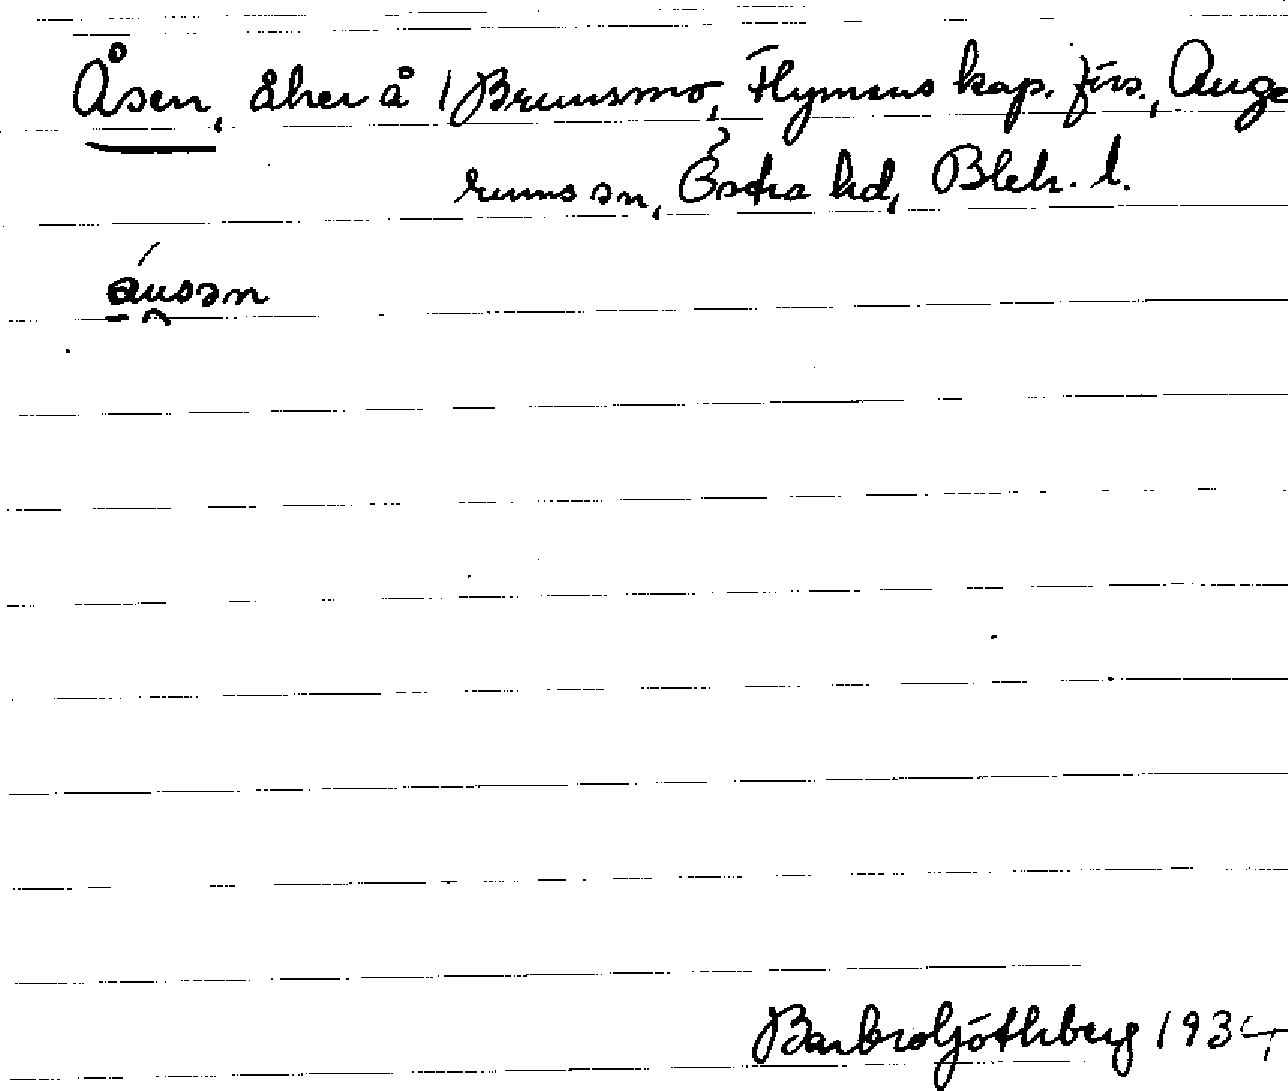 Åsen, åker å 1 Brunsmo, Flymens kap. förs., Auge
rums sn, Östra hd, Blek. l.
áusən
Barbro Göthberg 1934